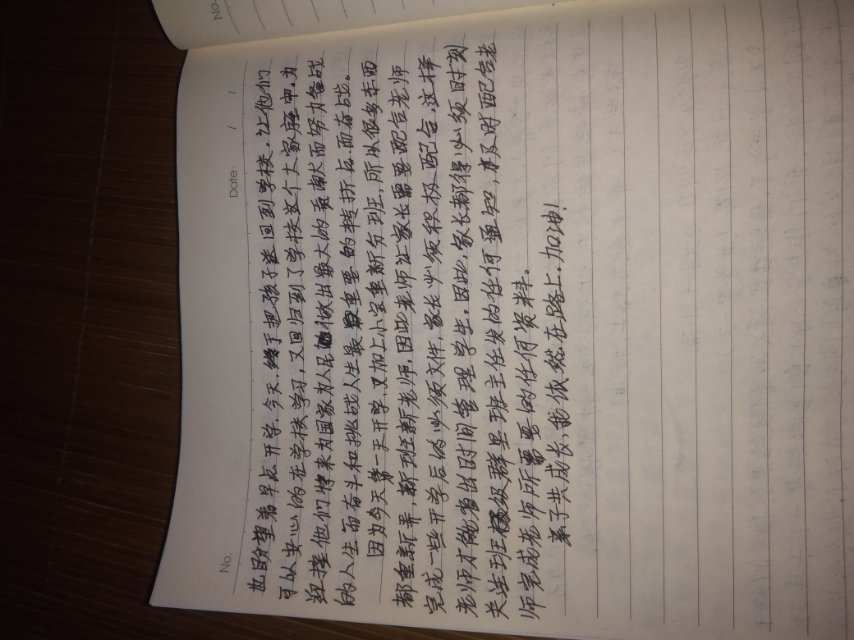 No.
No.
Date / /
也盼望着早点开学.今天,终于把孩子送回到学校,让他们
可以安心的在学校学习,又回归到了学校这个大家庭中.为
迎接他们将来为国家为人民做出最大的贡献而努力备战
的人生而奋斗和挑战人生最重要的转折点.而奋战。
因为今天第一天开学,又加上小宝重新分班,所以很多东西
都重新弄,新班新老师,因此老师让家长需要配合老师
完成一些开学后的必须文件,家长必须积极配合.这样
老师才能省出时间管理学生.因此,家长都得必须时刻
关注班级群里班主任发的任何通知,亦及时配合老
师完成老师所需要的任何资料.
亲子共成长,我依然在路上.加油!